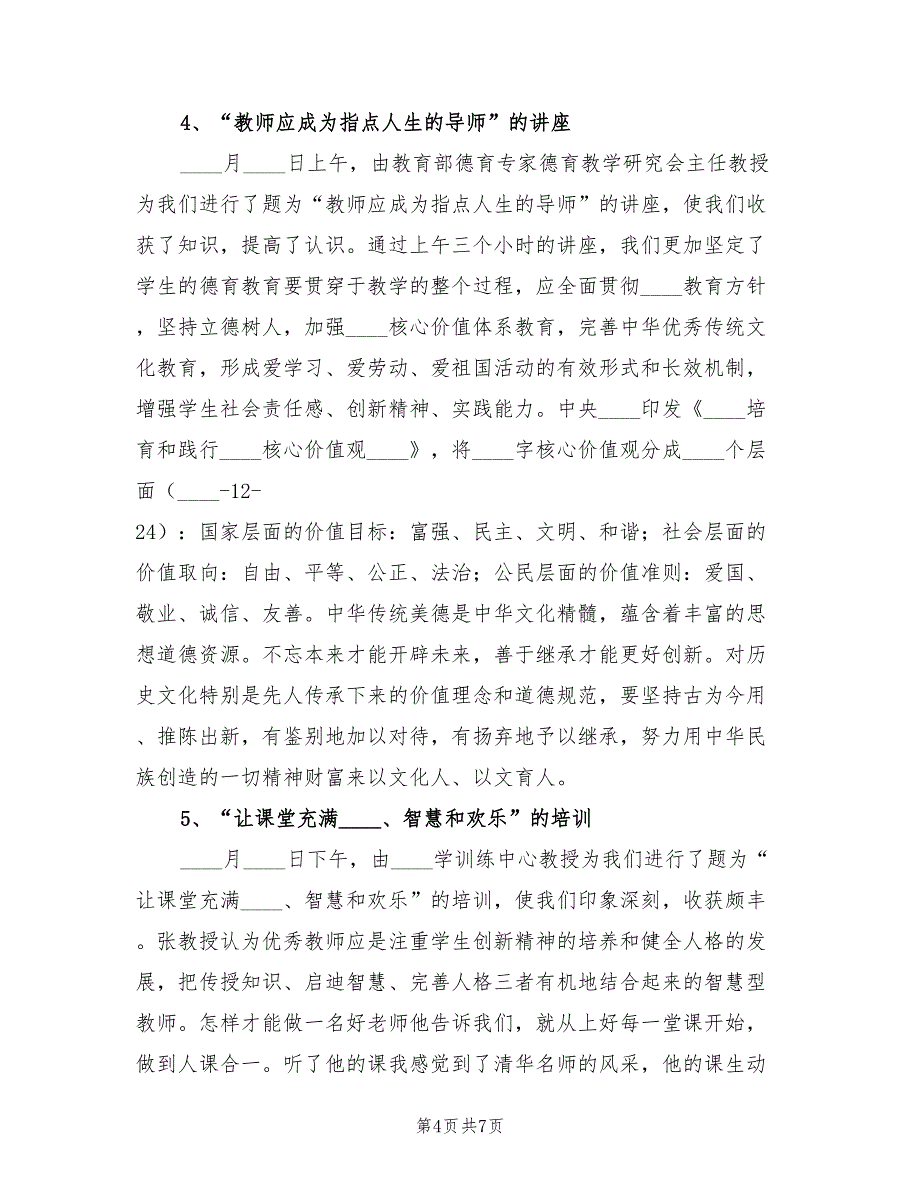 4、“教师应成为指点人生的导师”的讲座
____月____日上午，由教育部德育专家德育教学研究会主任教授
为我们进行了题为“教师应成为指点人生的导师”的讲座，使我们收
获了知识，提高了认识。通过上午三个小时的讲座，我们更加坚定了
学生的德育教育要贯穿于教学的整个过程，应全面贯彻____教育方针
，坚持立德树人，加强____核心价值体系教育，完善中华优秀传统文
化教育，形成爱学习、爱劳动、爱祖国活动的有效形式和长效机制，
增强学生社会责任感、创新精神、实践能力。中央____印发《____培
育和践行____核心价值观____》，将____字核心价值观分成____个层
面（____-12-
24）：国家层面的价值目标：富强、民主、文明、和谐；社会层面的
价值取向：自由、平等、公正、法治；公民层面的价值准则：爱国、
敬业、诚信、友善。中华传统美德是中华文化精髓，蕴含着丰富的思
想道德资源。不忘本来才能开辟未来，善于继承才能更好创新。对历
史文化特别是先人传承下来的价值理念和道德规范，要坚持古为今用
、推陈出新，有鉴别地加以对待，有扬弃地予以继承，努力用中华民
族创造的一切精神财富来以文化人、以文育人。
5、“让课堂充满____、智慧和欢乐”的培训
____月____日下午，由____学训练中心教授为我们进行了题为“
让课堂充满____、智慧和欢乐”的培训，使我们印象深刻，收获颇丰
。张教授认为优秀教师应是注重学生创新精神的培养和健全人格的发
展，把传授知识、启迪智慧、完善人格三者有机地结合起来的智慧型
教师。怎样才能做一名好老师他告诉我们，就从上好每一堂课开始，
做到人课合一。听了他的课我感觉到了清华名师的风采，他的课生动
第4页共7页